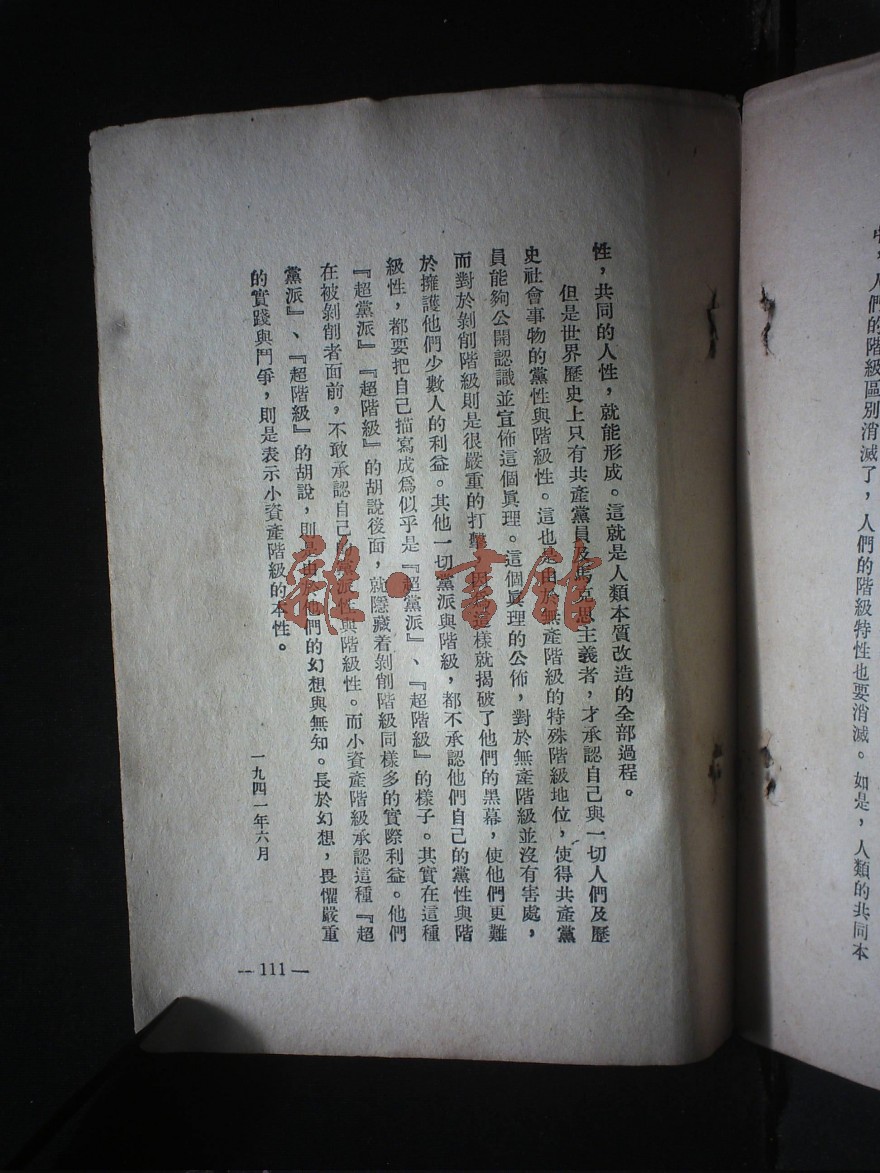 中，人們的階級區別消滅了，人們的階級特性也要消滅。如是，人類的共同本
性，共同的人性，就能形成。這就是人類本质改造的全部過程。
但是世界歷史上只有共產黨員及馬克思主義者，才承認自己與一切人們及歷
史社會事物的黨性與階級性。這也是由於無產階級的特殊階級地位，使得共產黨
員能夠公開認識並宣佈這個眞理。這個眞理的公佈，對於無產階級並沒有害處，
而對於剝削階級則是很嚴重的打擊，因爲這樣就揭破了他們的黑幕，使他們更難
於擁護他們少數人的利益。其他一切黨派與階級，都不承認他們自己的黨性與階
級性，都要把自己描寫成爲似乎是『超黨派』、『超階級』的樣子。其實在這種
『超黨派』『超階級』的胡說後面，就隱藏着剝削階級同樣多的實際利益。他們
在被剝削者面前，不敢承認自己的黨派性與階級性。而小資產階級承認這種『超
黨派』、『超階級』的胡說，則是由於他們的幻想與無知。長於幻想，畏懼嚴重
的實踐與鬥爭，則是表示小資產階級的本性。
一九四一年六月
— 111 —
雜·書館